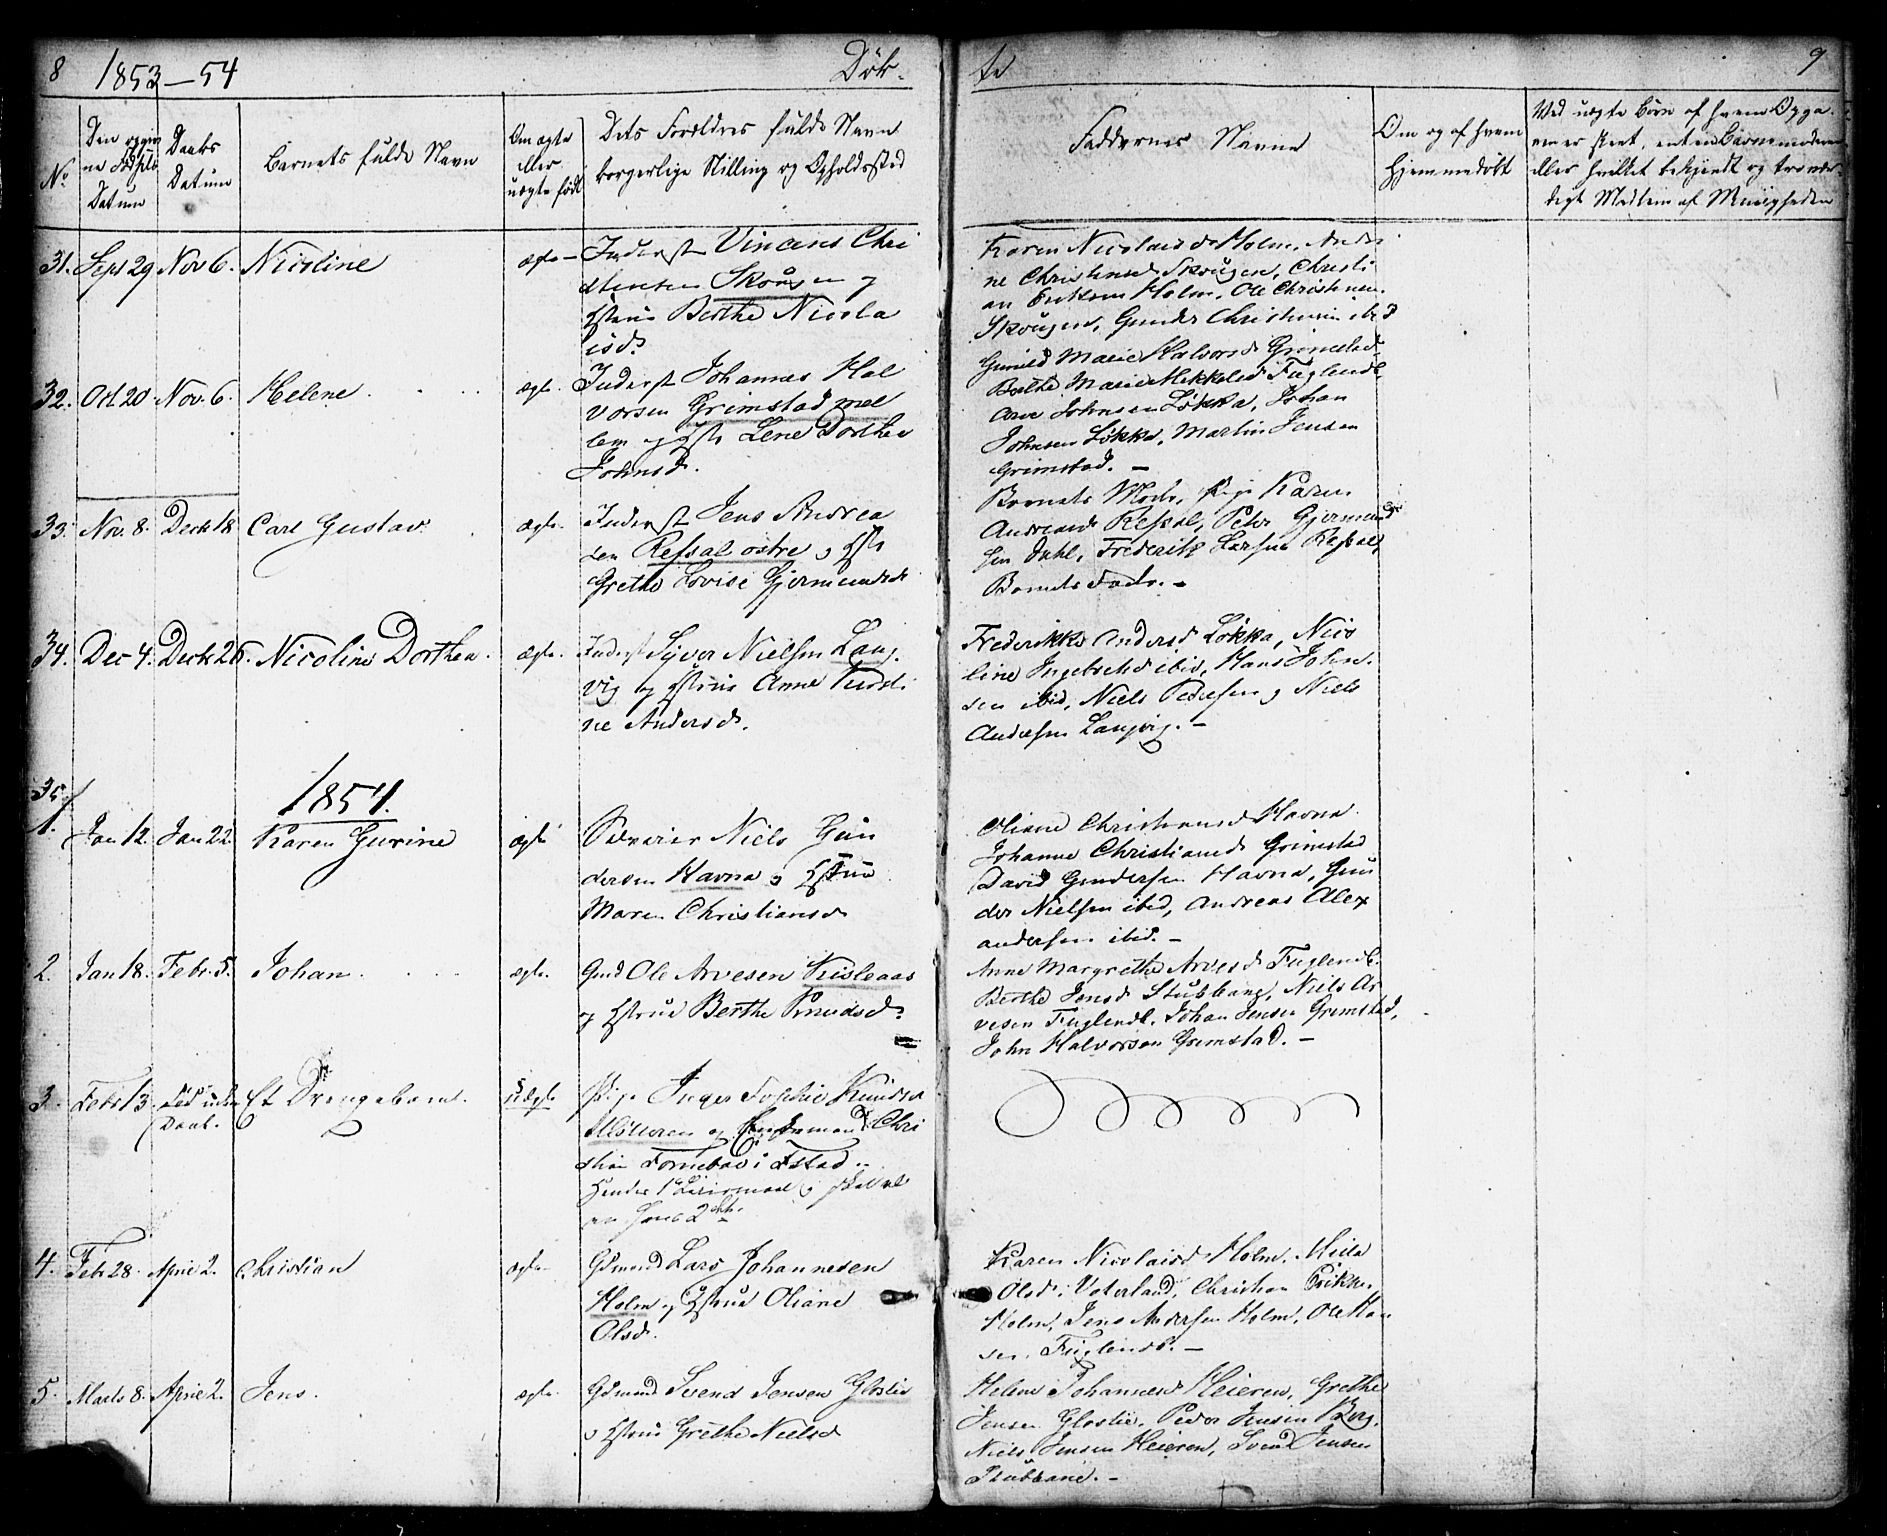 8 1853–54 Døb-
te 9
No
Den opgivne Fødsels Datum
Daabs Datum
Barnets fulde Navn
Om ægte eller uægte født
Dets Forældres fulde Navn borgerlige Stilling og Opholdssted
Faddernes Navne
Om og af hvem Hjemmedøbt
Ved uægte Børn af hvem Opga-
ven er skeet, enten Barnemoderen
eller hvilket bekjendt og trovær-
digt Medlem af Menigheden
31. Sept 29 Nov 6. Nicoline ægte – Inderst Vincens Chri
stensen Skougen og
Hstru Berthe Nicola
isd.
Karen Nicolaisd Holm, Andri
ne Christensd Skougen, Christi
an Eriksen Holm, Ole Christensen
Skougen, Gunder Christensen ibid
32. Oct 20 Nov. 6. Helene ægte. Inderst Johannes Hal
vorsen Grimstad mel
lem og Hstr Lene Dorthea
Johnsd.
Gunild Marie Halvorsd Grimstad,
Berthe Marie Mikkelsd Fuglendb.
Arve Johnsen Løkka, Johan
Johnsen Løkka, Martin Jensen
Grimstad. –
33. Nov. 8. Decb 18 Carl Gustav ægte. Inderst Jens Andrea
sen Refsal østre og Hstr
Grethe Lovise Gjermundsd
Barnets Moder, Pige Karen
Andreasd Refsal, Peter Gjermund
sen Dahl, Frederik Larsen Refsal,
Barnets Fader. –
34. Dec 4. Decb 26. Nicoline Dorthea. ægte. Inderst Syver Nielsen Lang
vig og Hstru Anne Kirsti
ne Andersd.
Frederikke Andersd Løkka, Nico
line Ingebretsd ibid, Hans John
sen ibid, Niels Pedersen og Niels
Andersen Langvig. –
35
1854.
1. Jan 12. Jan 22. Karen Gurine ægte Selveier Niels Gun
dersen Havna og Hstru
Maren Christiansd
Oliane Christiansd Havna
Johanne Christiansd Grimstad
David Gundersen Havna, Gun
der Nielsen ibid, Andreas Alex
andersen ibid. –
2. Jan 18. Febr. 5. Johan ægte. Gmd Ole Arvesen Kisleaas
og Hstru Berthe Knudsd.
Anne Margrethe Arvesd Fuglendb.
Berthe Jensd Stubbane, Niels Ar
vesen Fuglendb. Johan Jensen Grimstad,
John Halvorsen Grimstad. –
3. Febr 13. Død uden Daab. Et Drengebarn. uægte Pige Inger Sophie Knudsd
Mølleren og Chri
stian Tornebas i Fstad
Hendes 1e Leiermaal og
hans 2det.
4. Febr 28. April 2. Christian ægte Gdmand Lars Johannesen
Holm og Hstru Oliane
Olsd.
Karen Nicolaisd Holm, Mille
Olsd i Vaterland, Christian Eriksen
Holm, Jens Andersen Holm, Ole Han
sen Fuglendb. –
5. Marts 8. April 2. Jens. ægte. Gdmand Svend Jensen Gloslie
og Hstru Grethe Nielsd
Helene Johannesd Heieren, Grethe
Jensen Gloslie, Peder Jensen Berg,
Niels Jensen Heieren, Svend Jensen
Stubbane. –